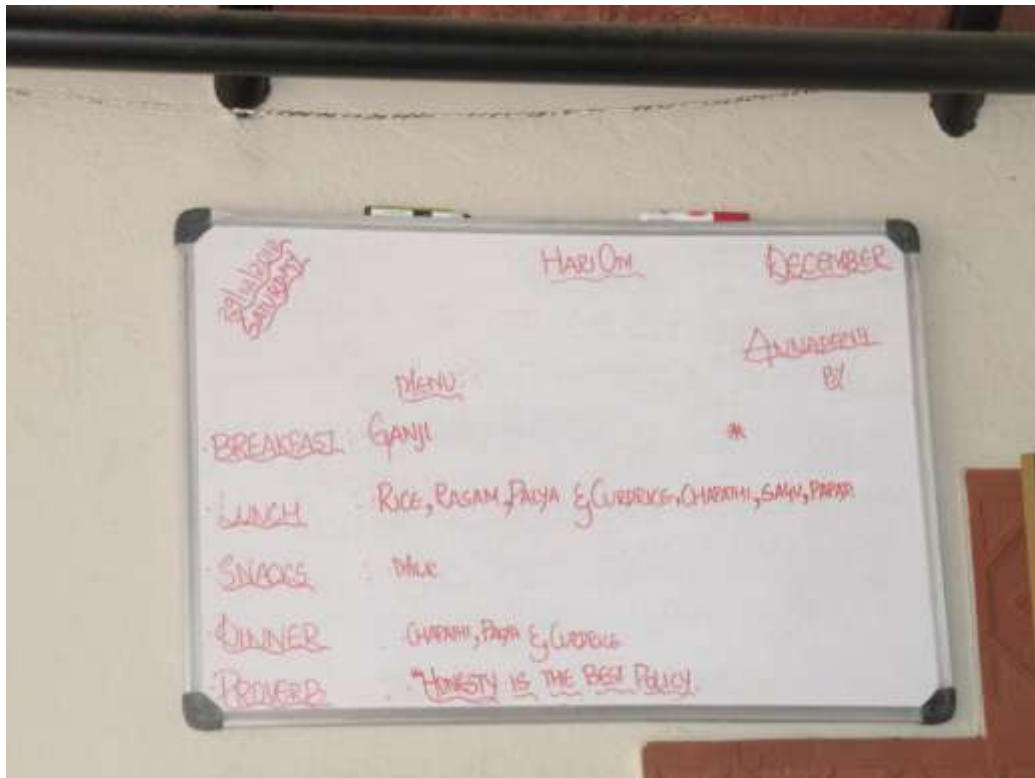 29/12/2018
SATURDAY
HARI OM
DECEMBER
BY
MENU:
BREAKFAST: GANJI
LUNCH : RICE, RASAM, PALYA & CURDRICE, CHAPATHI, SAGU, PAPAD.
SNACKS : MILK
DINNER : CHAPATHI, PALYA & CURDRICE
PROVERB : "HONESTY IS THE BEST POLICY.